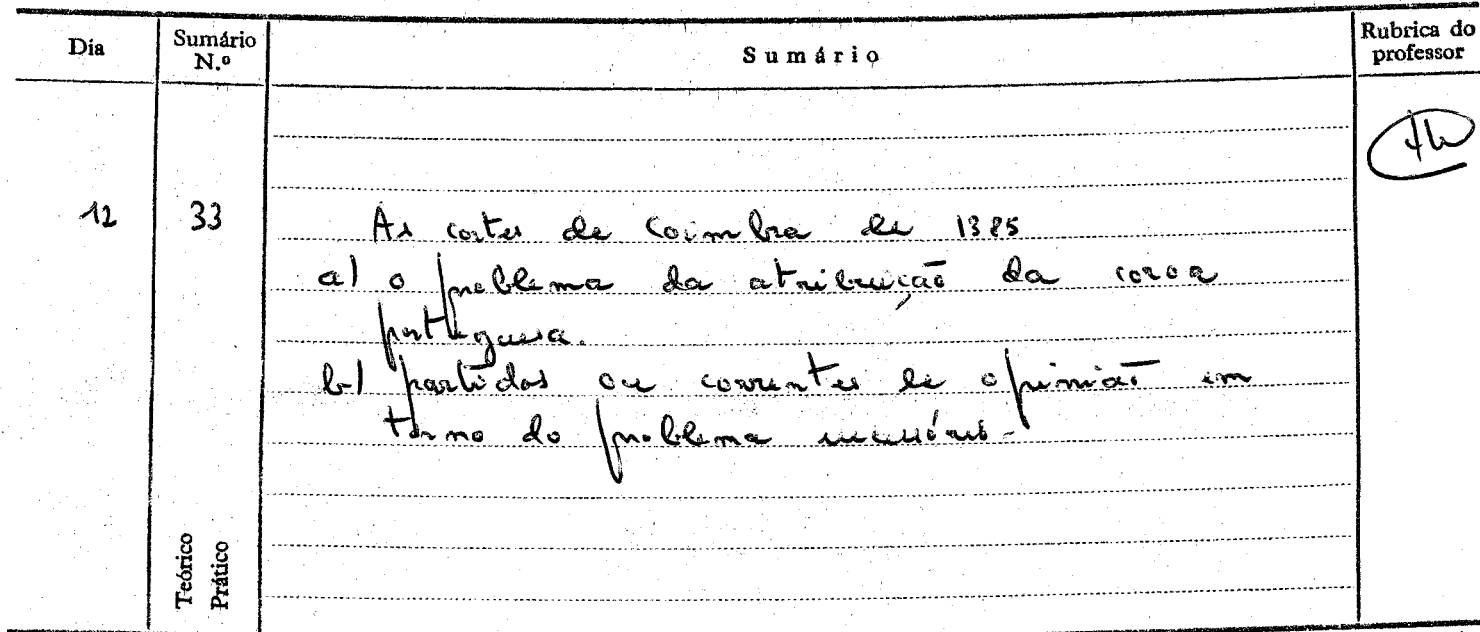 Dia
Sumário N.º
Sumário
Rubrica do professor
12
33
As cortes de Coimbra de 1385
a) o problema da atribuição da coroa
portuguesa.
b) partidos ou correntes de opinião em
torno do problema sucessório.
Teórico
Prático